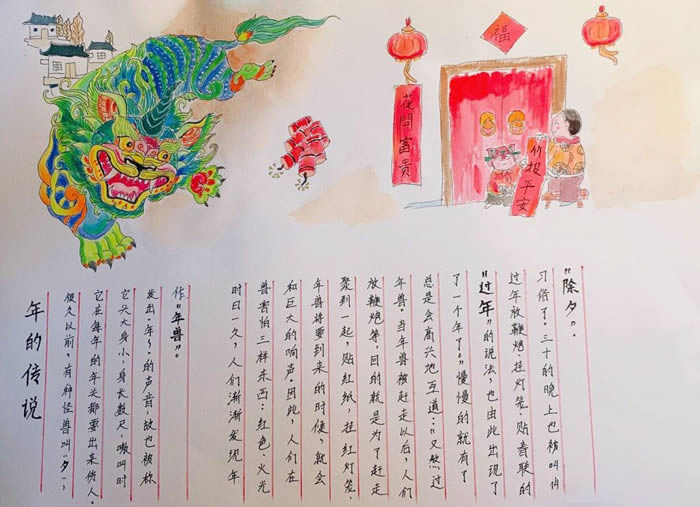 福
花開富贵
竹报平安
年的传说
很久以前,有种怪兽叫"夕",
它在每年的年关都要出来伤人。
它头大身小,身长数尺,嗷叫时
发出"年~"的声音,故也被称
作"年兽"。
时日一久,人们渐渐发现年
兽害怕三样东西:红色、火光
和巨大的响声。因此,人们在
年兽将要到来的时候,就会
聚到一起,贴红纸,挂红灯笼,
放鞭炮等,目的就是为了赶走
年兽。当年兽被赶走以后,人们
总是会高兴地互道:"又熬过
了一个年了。"慢慢的就有了
"过年"的说法,也由此出现了
过年放鞭炮、挂灯笼、贴春联的
习俗了。三十的晚上也被叫作
"除夕"。